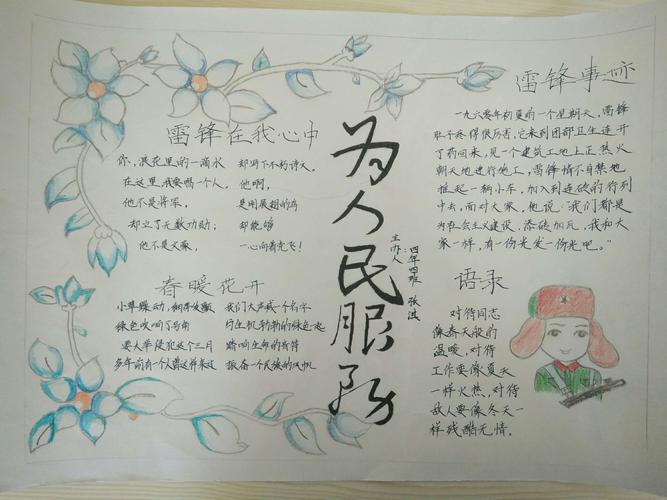 雷锋在我心中
你,浪花里的一滴水
在这里,我要唱一个人,
他不是将军,
却立了无数功勋;
他不是文豪,
却写下不朽的诗文,
他啊,
是用展翅的鸟
却能够
一心向着党飞!
春暖花开
小草躁动,
绿色吹响了号角
要大举侵犯这个三月
多年前有一个人曾这样来过
我们大声喊一个名字
振奋一个民族的风帆
为人民服务
主办人:
四年四班 张洪
雷锋事迹
一九六零年初夏的一个星期天,雷锋
肚子疼得很厉害,它来到团部卫生连开
了药回来,见一个建筑工地上正热火
朝天地进行施工,雷锋情不自禁地
推起一辆小车,加入到运砖的行列
中去,面对大家,他说:“我们都是
为社会主义建设,添砖加瓦,我和大
家一样,有一份光发一份光吧。”
语录
对待同志
像春天般的
温暖,对待
工作要像夏天
一样火热、对待
敌人要像冬天一
样残酷无情。